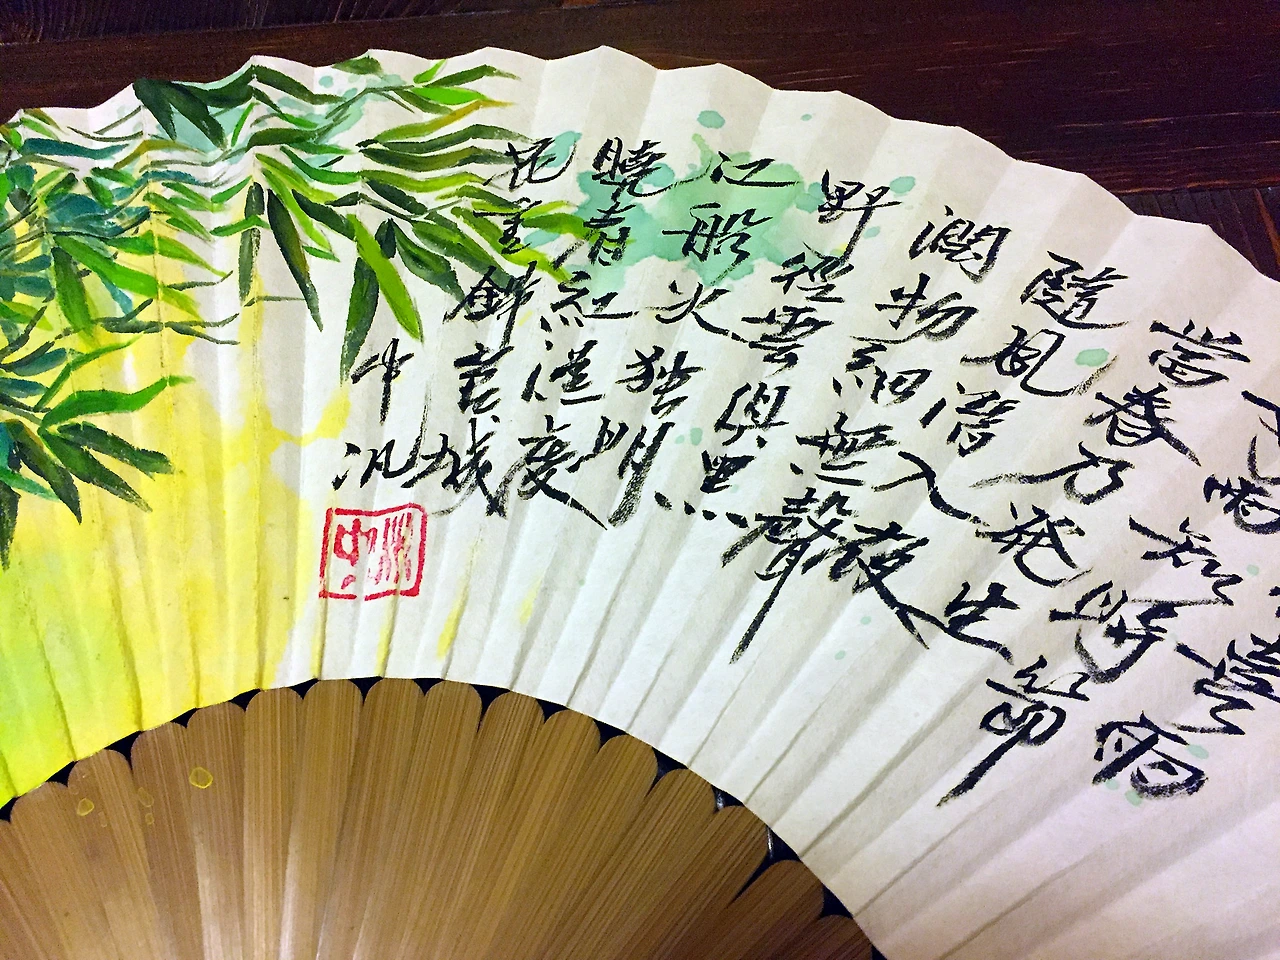 喜雨
雨知時節
當春乃發生
隨風潛入夜
潤物細無聲
野徑雲俱黑
江船火独明
曉看紅湿處
花重錦官城